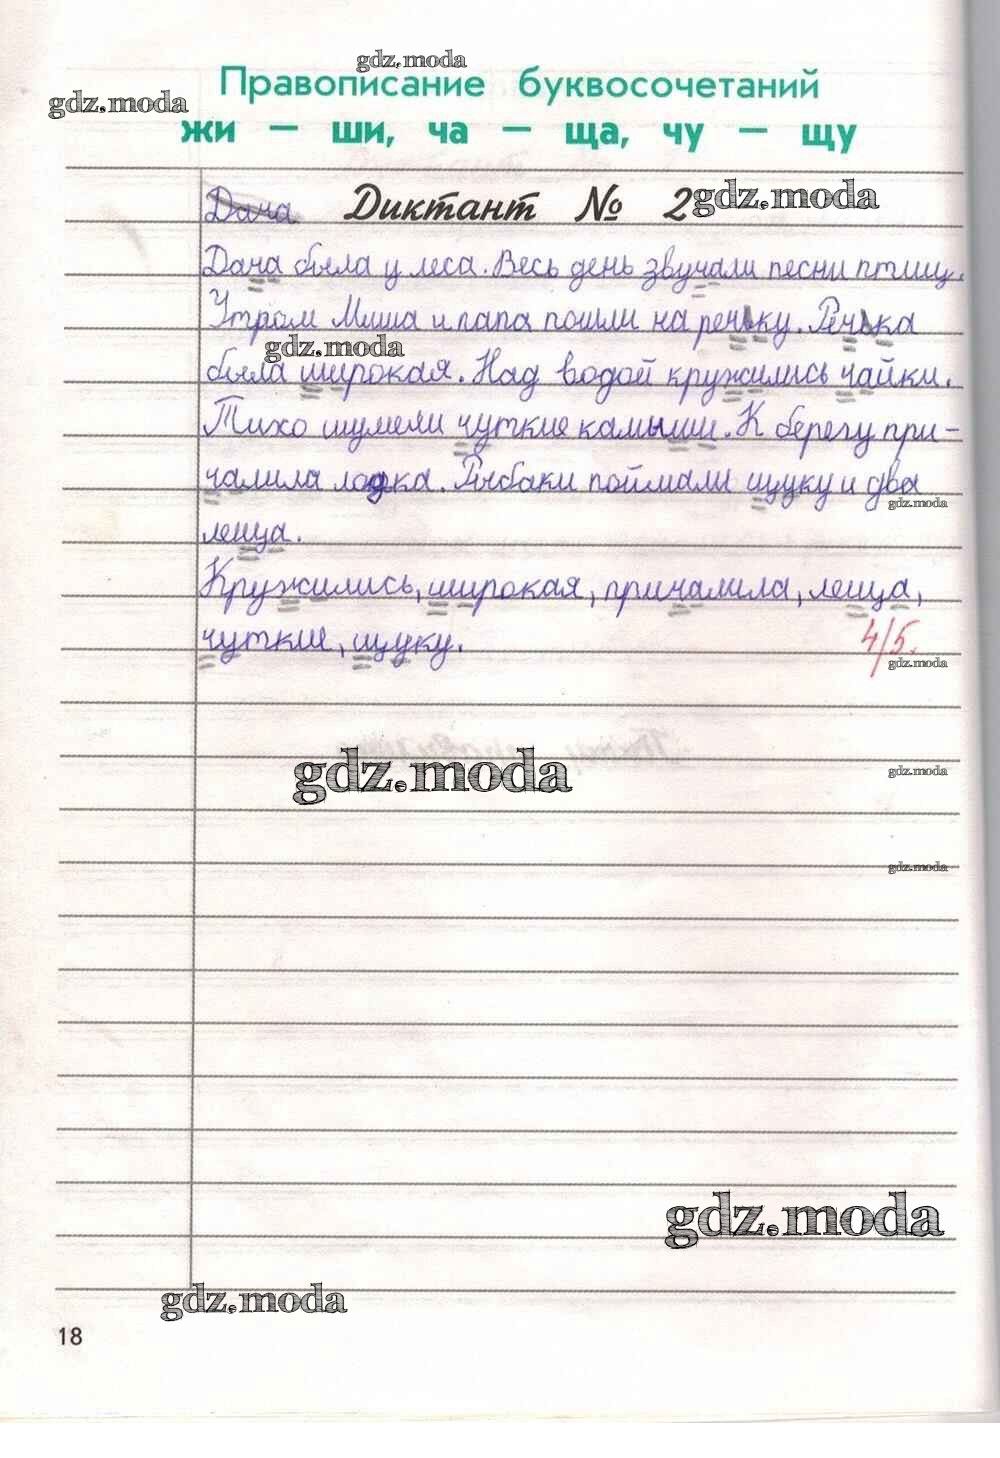 gdz.moda
Правописание буквосочетаний
gdz.moda
жи – ши, ча – ща, чу – щу
Дача Диктант № 2 gdz.moda
Дача была у леса. Весь день звучали песни птиц.
Утром Миша и папа пошли на речку. Речка
gdz.moda
была широкая. Над водой кружились чайки.
Тихо шумели чуткие камыши. К берегу при-
чалила лодка. Рыбаки поймали щуку и два
gdz.moda
леща.
Кружились, широкая, причалила, леща,
чуткие, щуку. 4/5.
gdz.moda
gdz.moda
gdz.moda
gdz.moda
gdz.moda
gdz.moda
18